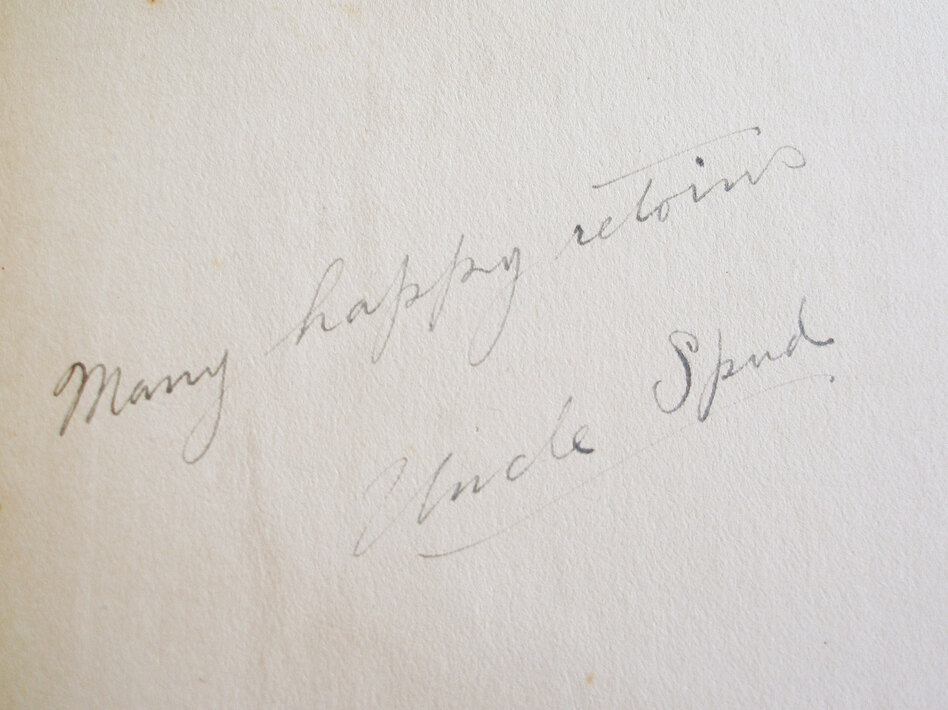 Many happy retoins
Uncle Spud